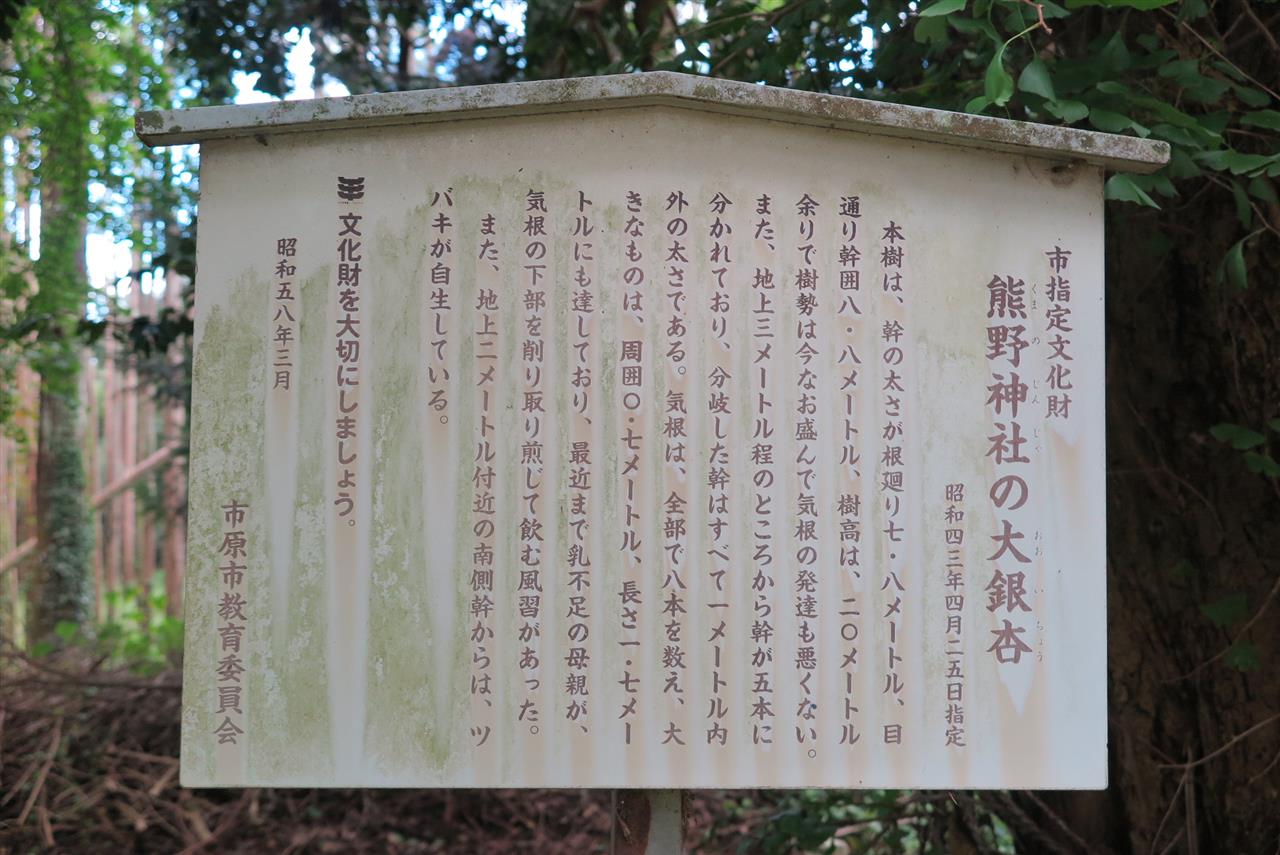 市指定文化財
熊野神社の大銀杏
くまのじんじゃ おおいちょう
昭和四三年四月二五日指定
本樹は、幹の太さが根廻り七・八メートル、目
通り幹囲八・八メートル、樹高は、二〇メートル
余りで樹勢は今なお盛んで気根の発達も悪くない。
また、地上三メートル程のところから幹が五本に
分かれており、分岐した幹はすべて一メートル内
外の太さである。気根は、全部で八本を数え、大
きなものは、周囲〇・七メートル、長さ一・七メー
トルにも達しており、最近まで乳不足の母親が、
気根の下部を削り取り煎じて飲む風習があった。
また、地上二メートル付近の南側幹からは、ツ
バキが自生している。
文化財を大切にしましょう。
昭和五八年三月
市原市教育委員会